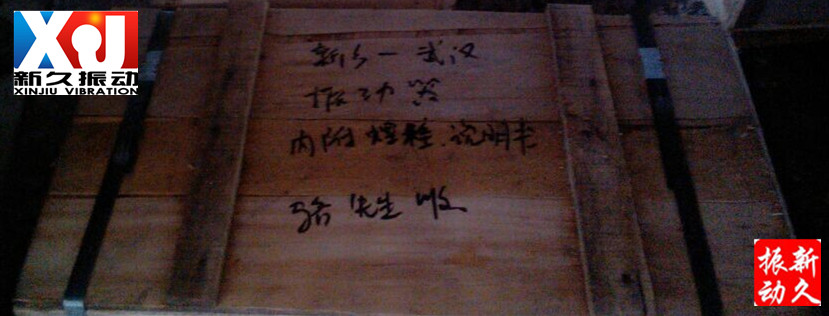 新久振动
XINJIU VIBRATION
新乡一武汉
振动器
内附 说明书
骆先生收
新久
振动